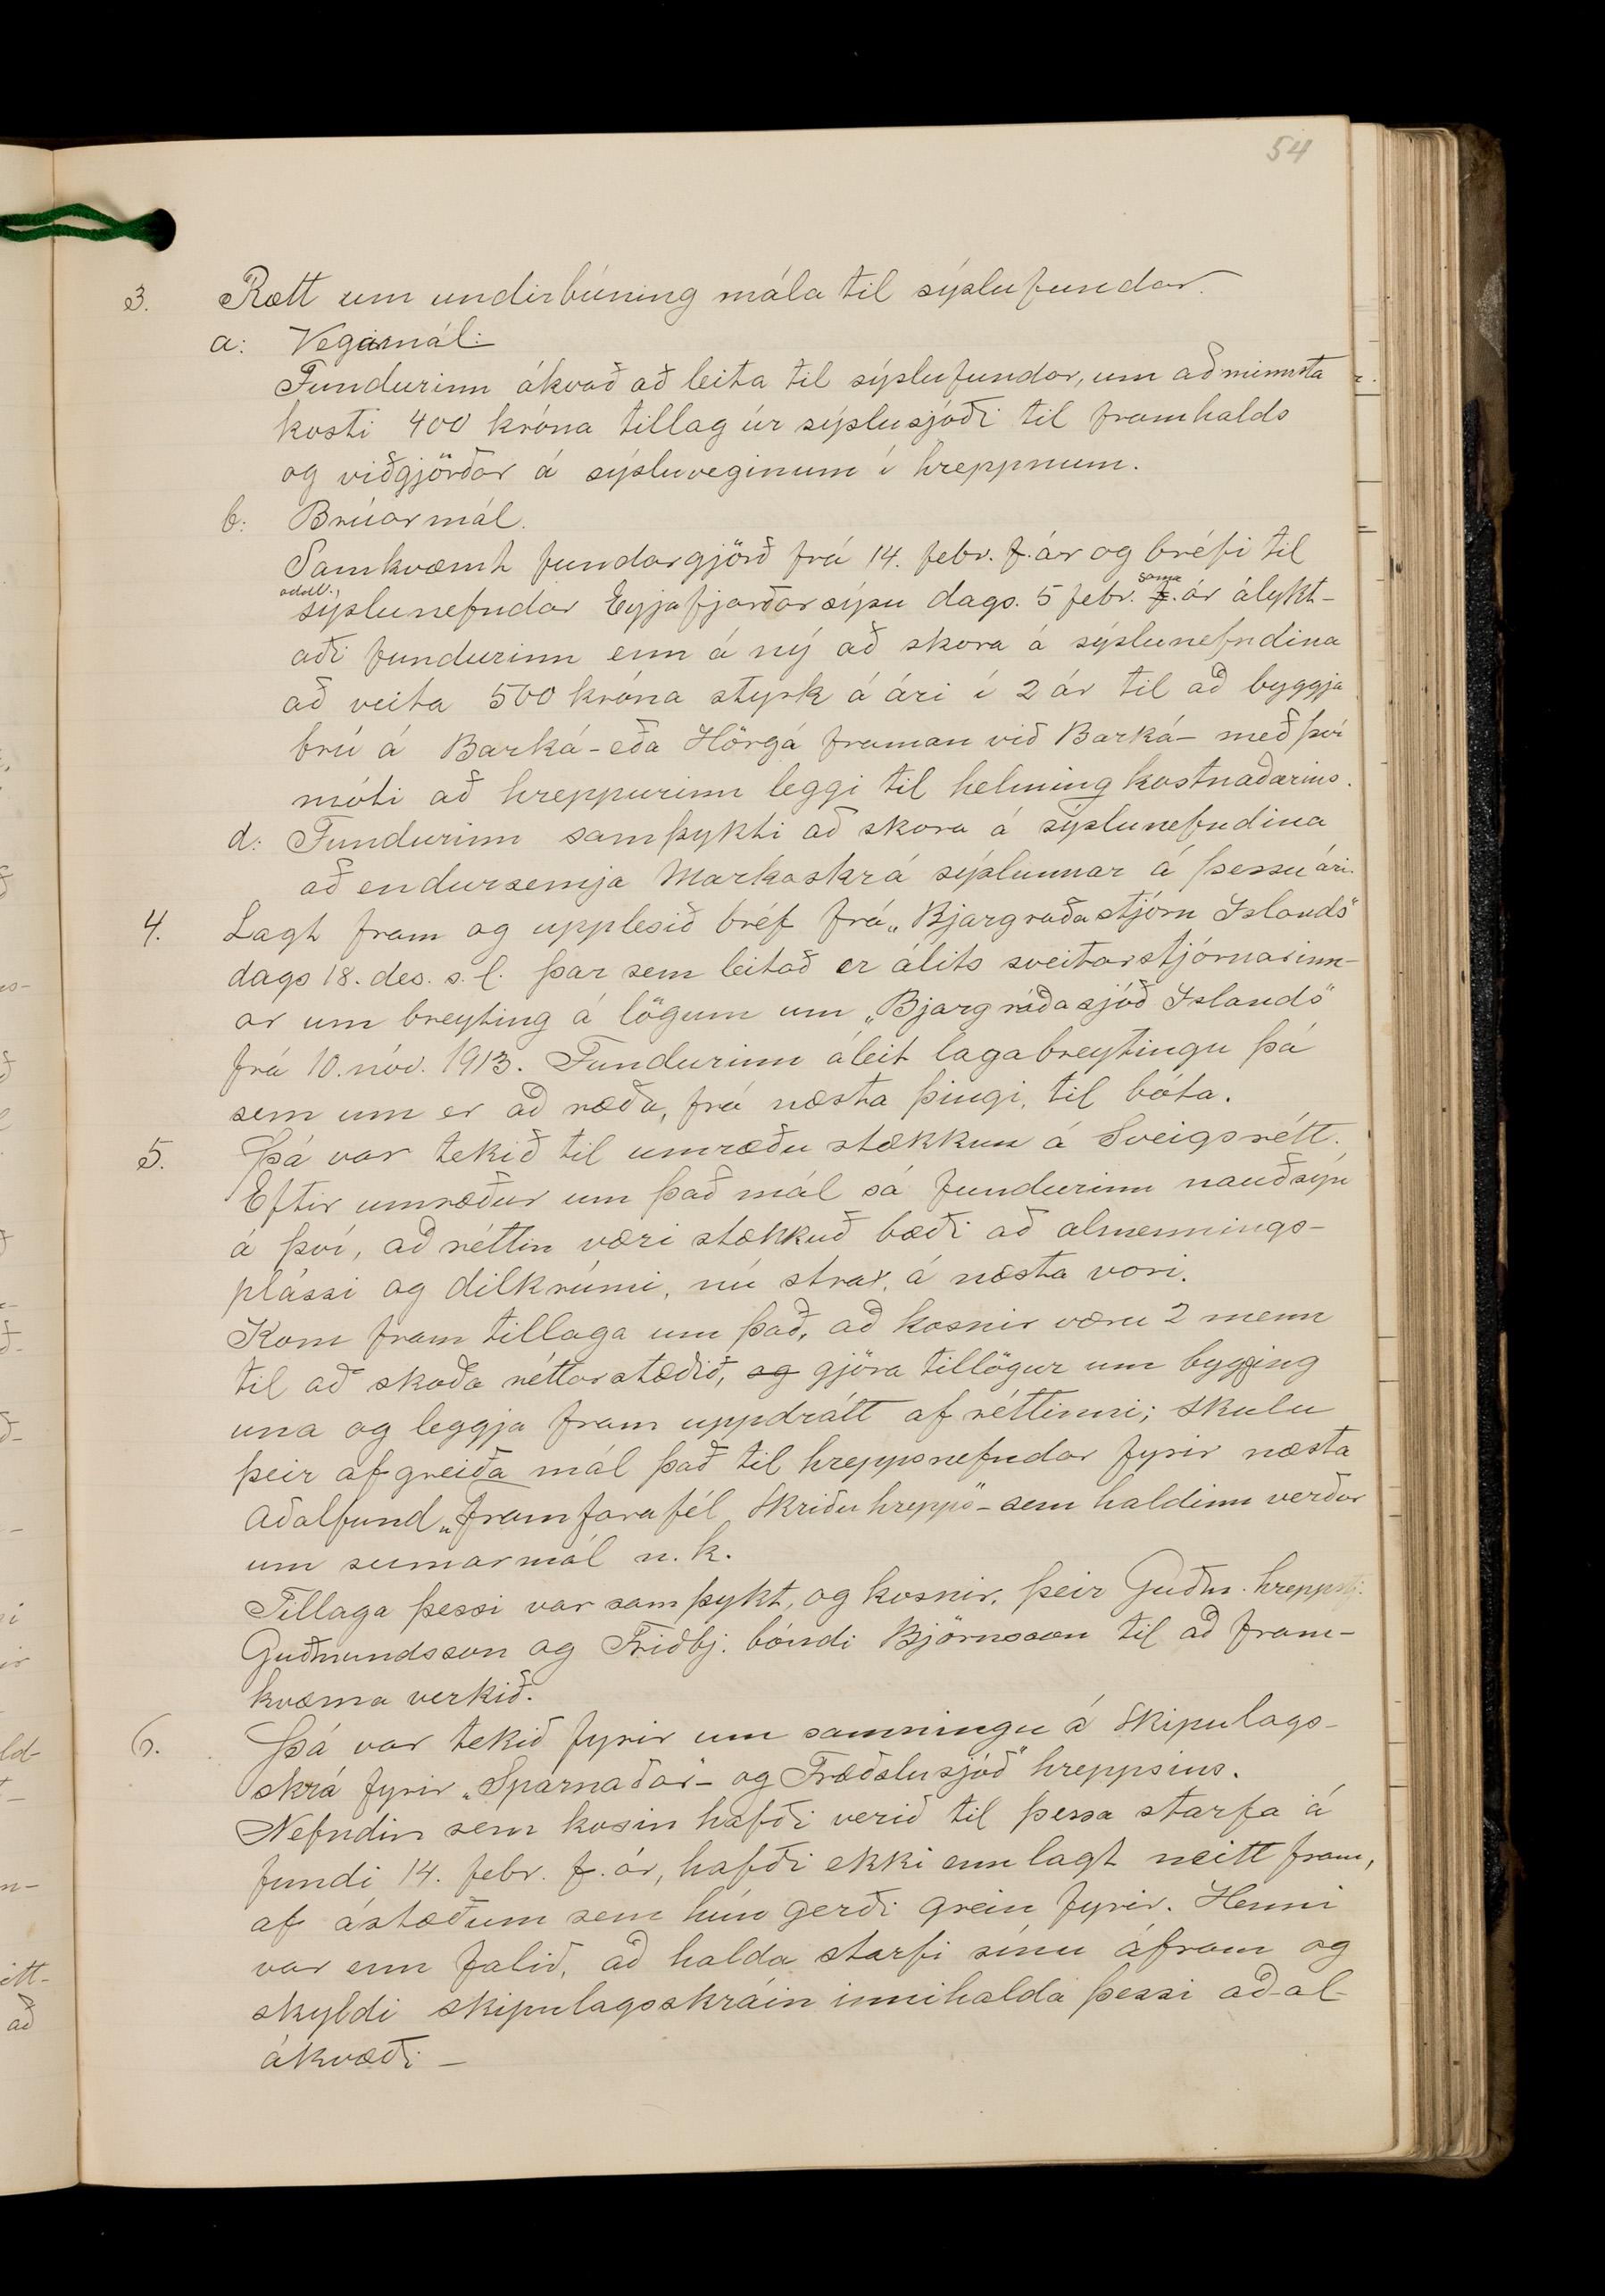 54
3. Rætt um undirbúning mála til sýslufundar.
a: Vegamál:
Fundurinn ákvað að leita til sýslufundar, um að minnsta
kosti 400 króna tillag úr sýslusjóði til framhalds
og viðgjörðar á sýsluveginum í hreppnum.
b: Brúarmál.
Samkvæmt fundargjörð frá 14. febr. f. ár og bréfi til
oddv. sama
sýslunefndar Eyjafjarðarsýsu dags. 5 febr. f. ár álykt-
aði fundurinn enn á ný að skora á sýslunefndina
að veita 500 króna styrk á ári í 2 ár til að byggja
brú á Barká - eða Hörgá framan við Barká - með því
móti að hreppurinn leggi til helming kostnaðarins.
d: Fundurinn samþykti að skora á sýslunefndina
að endursemja Markaskrá sýslunnar á þessu ári.
4. Lagt fram og upplesið bréf frá „Bjargráðastjórn Islands"
dags 18. des. s. l. þar sem leitað er álits sveitarstjórnarinn-
ar um breyting á lögum um „Bjargráðasjóð Islands"
frá 10. nóv. 1913. Fundurinn áleit lagabreytingu þá
sem um er að ræða, frá næsta þingi, til bóta.
5. Þá var tekið til umræðu stækkun á Sveigsrétt.
Eftir umræður um það mál sá fundurinn nauðsýn
á því, að réttin væri stækkuð bæði að almennings-
plássi og dilkrúmi, nú strax, á næsta vori.
Kom fram tillaga um það, að kosnir væru 2 menn
til að skoða réttarstæðið, og gjöra tillögur um bygging
una og leggja fram uppdrátt af réttinni; skulu
þeir afgreiða mál það til hreppsnefndar fyrir næsta
aðalfund „framfarafél Skriðuhrepps" - sem haldinn verður
um sumarmál n. k.
Tillaga þessi var samþykt, og kosnir, þeir Guðm. hreppstj.
Guðmundsson og Friðbj. bóndi Björnsson til að fram-
kvæma verkið.
6. Þá var tekið fyrir um samningu á Skipulags-
skrá fyrir „Sparnaðar- og Fræðslusjóð" hreppsins.
Nefndin sem kosin hafði verið til þessa starfa á
fundi 14. febr. f. ár, hafði ekki enn lagt neitt fram,
af ástæðum sem hún gerði grein fyrir. Henni
var enn falið, að halda starfi sínu áfram og
skyldi skipulagsskráin innihalda þessi aðal-
ákvæði -